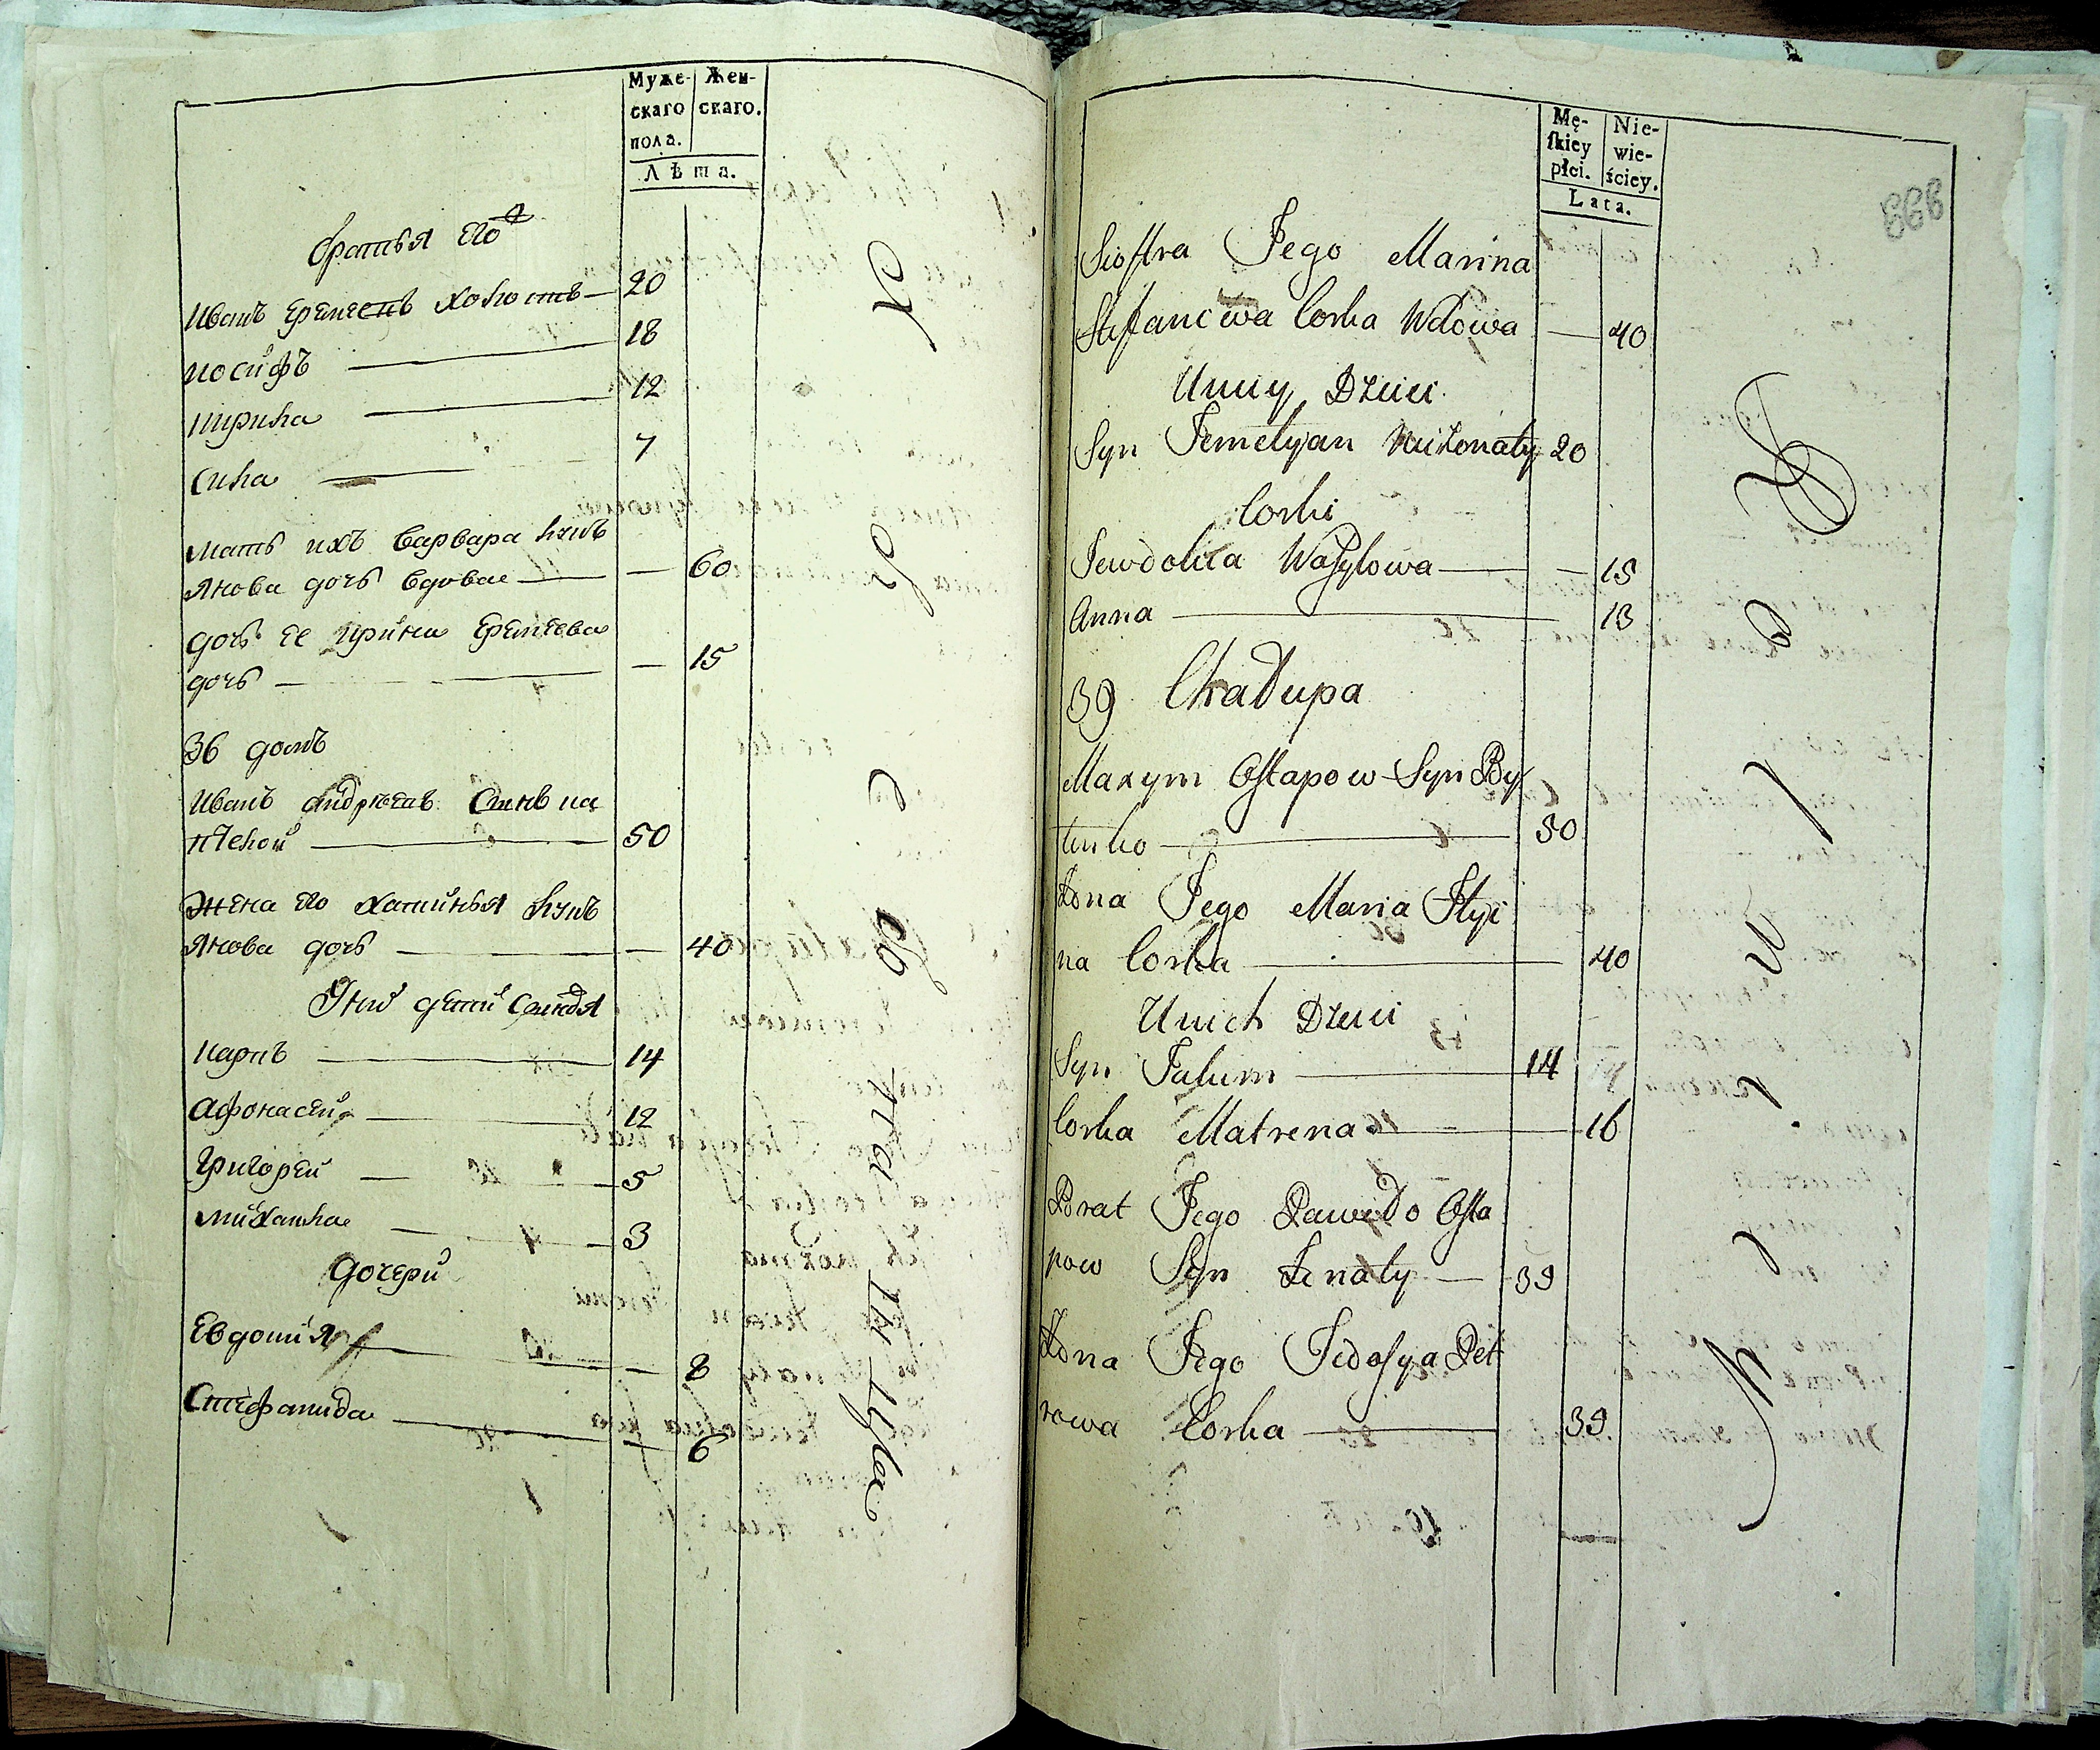 Муже-
скаго
пола.
Жен-
скаго.
Лѣта.
братья его
Иванъ Еремеевъ холостъ — 20
Иосифъ — 18
Кирила — 12
Сила — 7
мать ихъ Варвара Лукъ
янова дочь вдова — 60
дочь ее Ирина Еремеева
дочь — 15
36 домъ
Иванъ Андреевъ Сынъ
50
жена его Хатинья Лукъ
янова дочь — 40
У нихъ дети Сыновья
Карпъ — 14
Афонасей — 12
Григорей — 5
михаила — 3
дочери
Евдотия — 8
Степанида — 6
Mę-
skiey
płci.
Nie-
wie-
ściey.
Lata.
333
Siostra Jego Marina
Stefanowa Corka Wdowa — 40
U niey Dzieci
Syn Jemelyan Nieżonaty 20
Corki
Jewdokia Wasylowa — 15
Anna — 13
39 Chałupa
Maxym Ostapow Syn By
tenko — 50
Żona Jego Maria Ilyi
na Corka — 40
U nich Dzieci
Syn Jakim — 14
Corka Matrena — 16
Brat Jego Dawydo Osta
pow Syn Żenaty — 39
Żona Jego Fedosya Pet
rowa Corka — 39